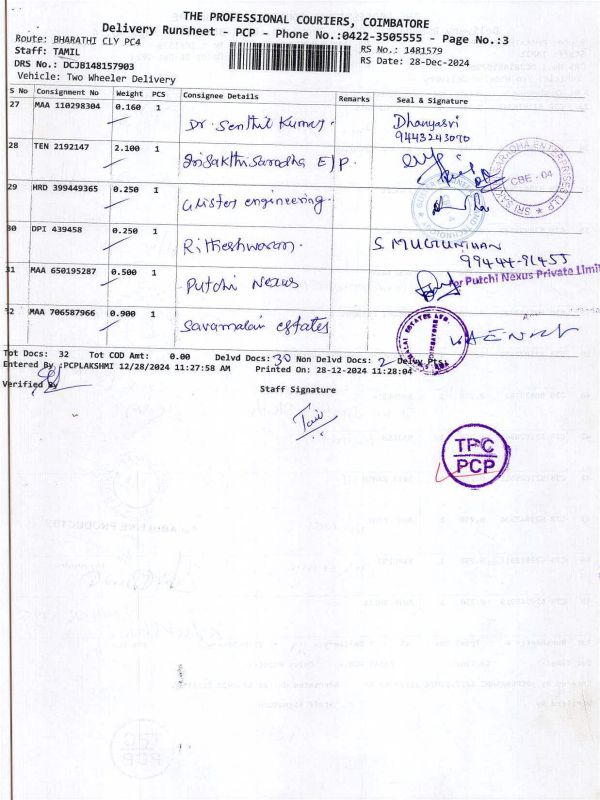 THE PROFESSIONAL COURIERS, COIMBATORE
Delivery Runsheet - PCP - Phone No.:0422-3505555 - Page No.:3
Route: BHARATHI CLY PC4
RS No.: 1481579
Staff: TAMIL
RS Date: 28-Dec-2024
DRS No.: DCJB148157903
Vehicle: Two Wheeler Delivery
S No Consignment No Weight PCS Consignee Details Remarks Seal & Signature
27 MAA 110298304 0.160 1 Dr. Senthil Kumar. Dhanyasri
9443243070
28 TEN 2192147 2.100 1 Srisakthisaradha E/P.
CBE - 04
29 HRD 399449365 0.250 1 engineering.
30 DPI 439458 0.250 1 Ritheshwaran. S. MUGUNTHAN
99444-91455
31 MAA 650195287 0.500 1 Putchi Nexus
for Putchi Nexus Private Limit
32 MAA 706587966 0.900 1 Savamalai estates
Tot Docs: 32 Tot COD Amt: 0.00 Delvd Docs: 30 Non Delvd Docs: 2 Delvy Pts:
Entered By :PCPLAKSHMI 12/28/2024 11:27:58 AM Printed On: 28-12-2024 11:28:04
Verified By
Staff Signature
TPC
PCP